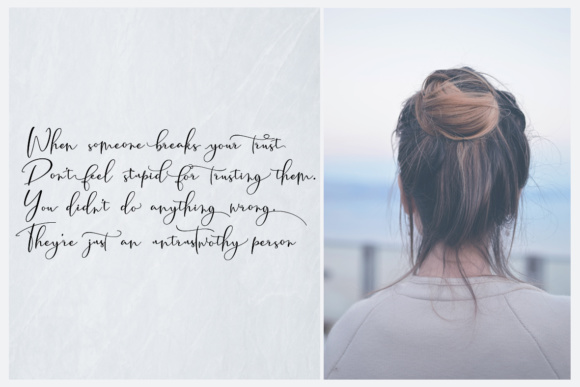 When someone breaks your trust
Don't feel stupid for trusting them.
You didn't do anything wrong.
They're just an untrustwothy person